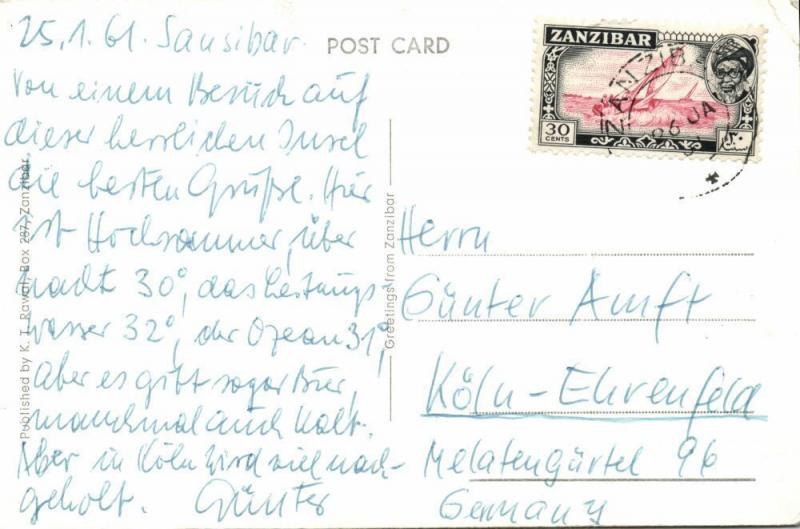 25.1.61. Sansibar.
POST CARD
Von einem Besuch auf
dieser herrlichen Insel
die besten Grüße. Hier
ist Hochsommer, über
Nacht 30°, das Leitungs-
wasser 32°, der Ozean 31°,
Aber es gibt sogar Bier,
manchmal auch kalt.
Aber in Köln wird viel nach-
geholt. Günter
Published by K. T. Rawal, Box 237, Zanzibar.
Greetings from Zanzibar
ZANZIBAR
30
CENTS
ZANZIB
26 JA
Herrn
Günter Amft
Köln-Ehrenfeld
Melatengürtel 96
Germany